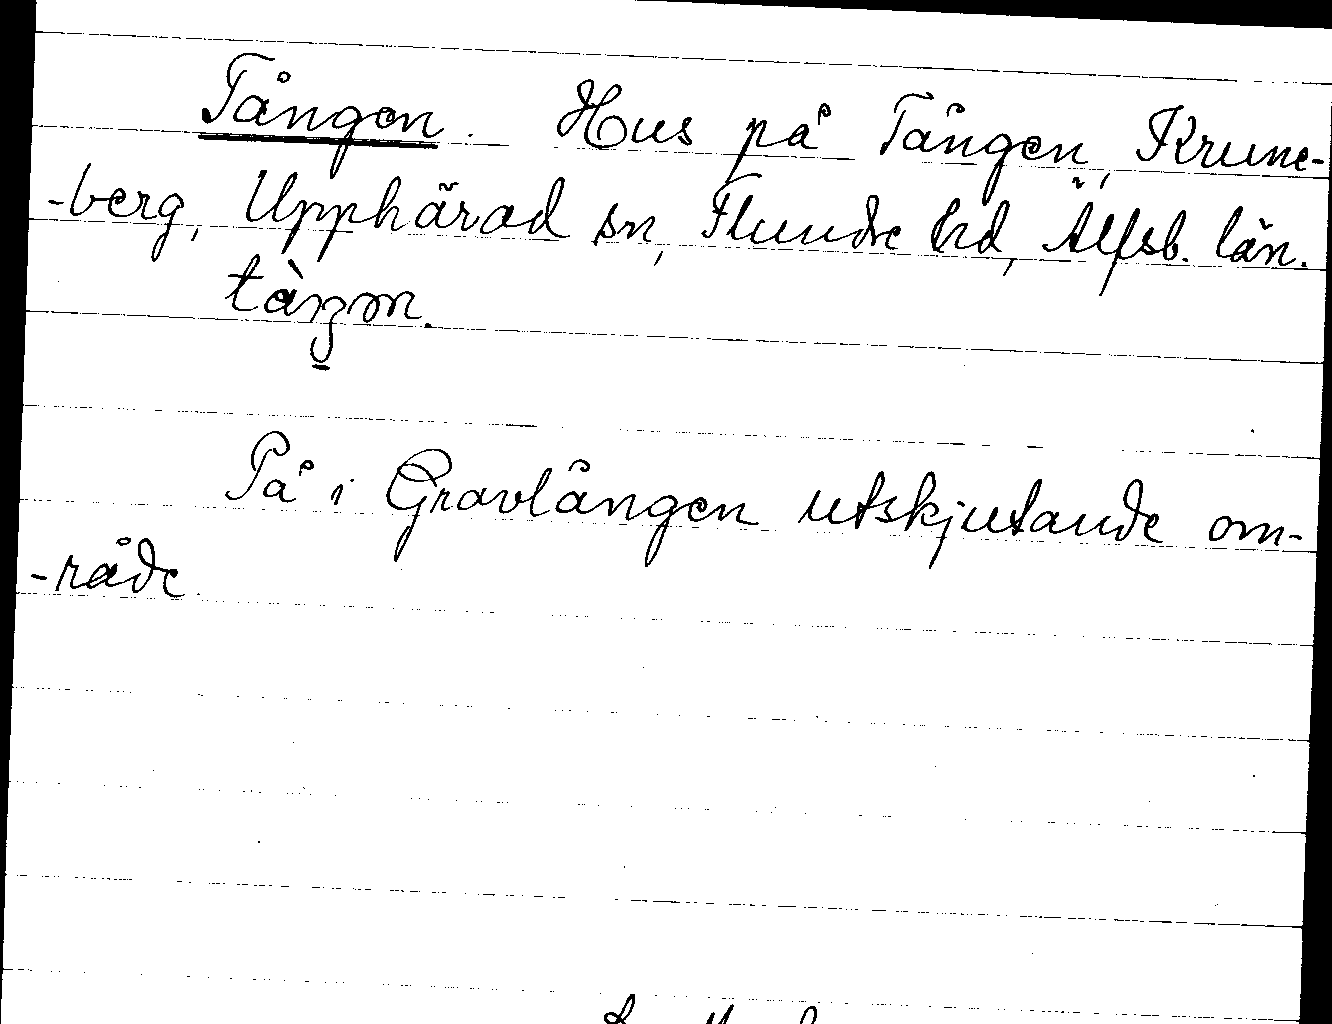 Tången. Hus på Tången, Krune-
-berg, Upphärad sn, Flundre hd, Älfsb. län.
På i Gravlången utskjutande om-
-råde.